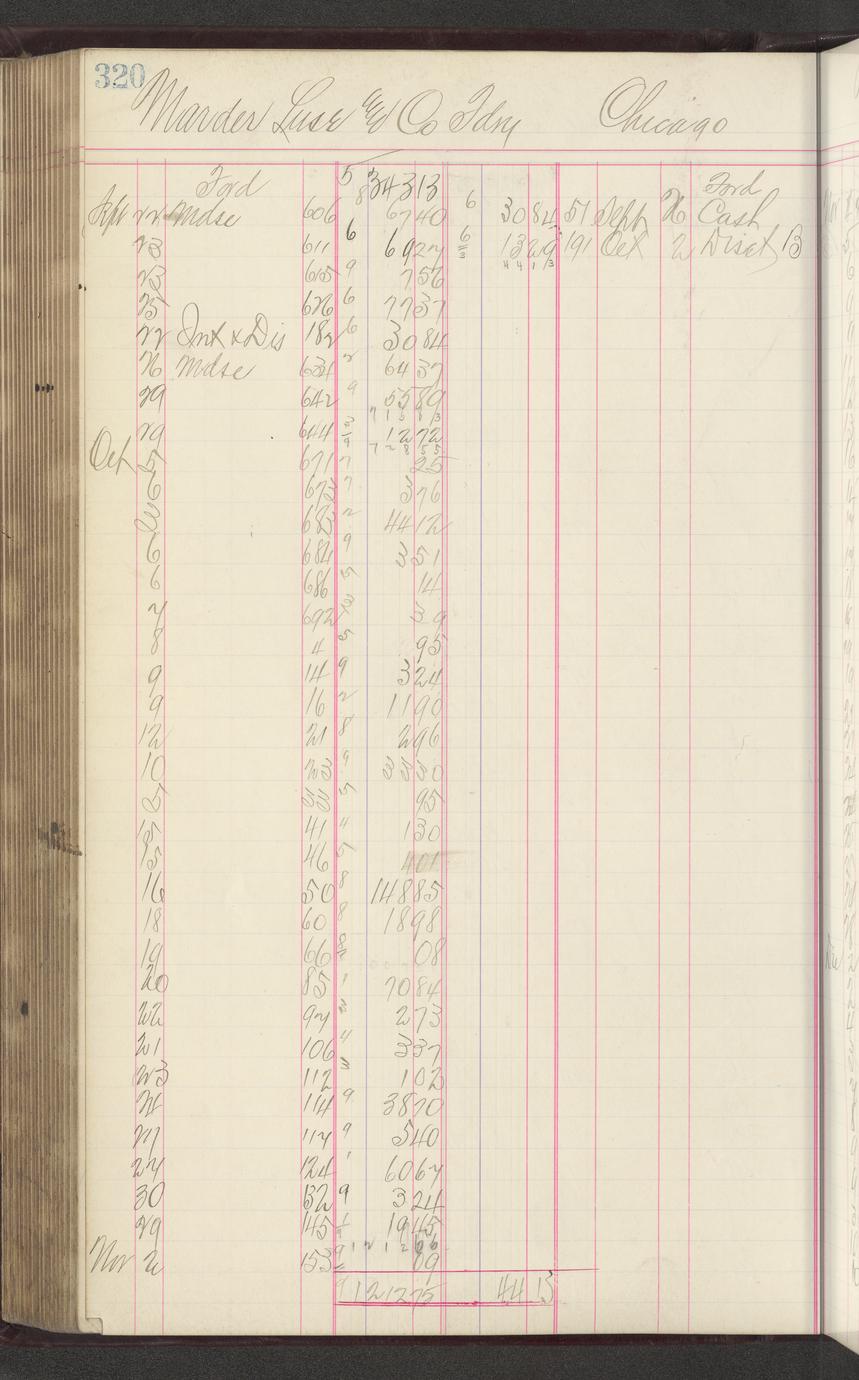 320
Marder Luse & Co Fdry Chicago
Ford 5 34313 Ford
Sept 22 Mdse 606 8 6740 6 3084 51 Sept 26 Cash
23 611 6 6927 6 1329 191 Oct 2 Disct 13
23 615 9 756 4413
25 626 6 7737
22 Int & Dis 182 6 3084
26 Mdse 634 2 6437
29 642 9 5589
71513
29 644 1272
72855
Oct 5 671 7 25
6 673 7 376
683 2 4412
6 684 9 351
6 686 5 14
7 692 39
8 4 5 95
9 14 9 324
9 16 2 1190
12 21 8 296
10 23 9 3330
33 5 95
15 41 4 130
15 46 5 401
16 50 8 14885
18 60 8 1898
19 66 8 08
20 85 1 7084
22 97 2 273
21 106 4 337
23 112 3 102
24 114 9 3870
27 117 9 540
27 124 1 6067
30 132 9 324
29 145 1 1945
121266
Nov 2 153 9 09
9 121275 4413